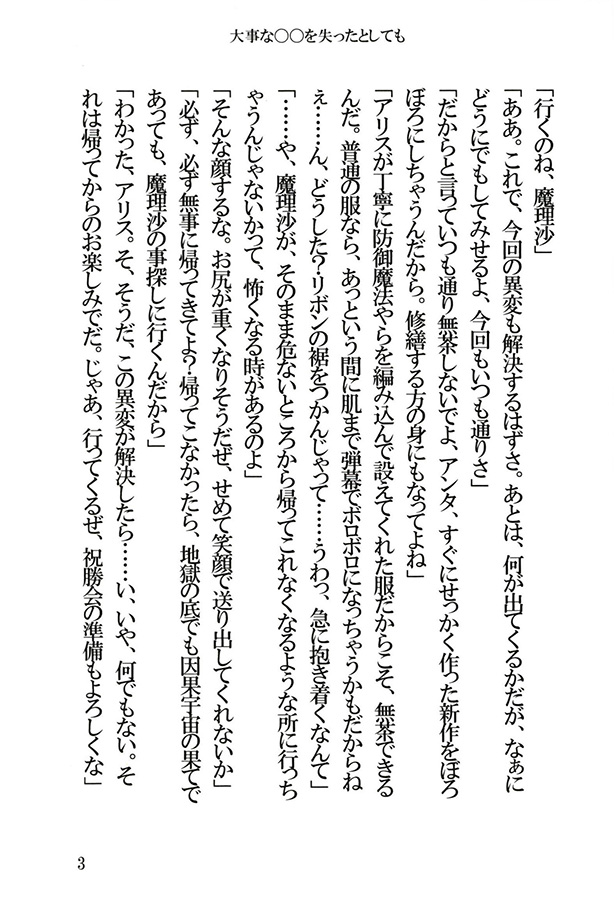 大事な〇〇を失ったとしても
「行くのね、魔理沙」
「ああ。これで、今回の異変も解決するはずさ。あとは、何が出てくるかだが、なぁに
どうにでもしてみせるよ、今回もいつも通りさ」
「だからと言っていつも通り無茶しないでよ、アンタ、すぐにせっかく作った新作をぼろ
ぼろにしちゃうんだから。修繕する方の身にもなってよね」
「アリスが丁寧に防御魔法やらを編み込んで設えてくれた服だからこそ、無茶できる
んだ。普通の服なら、あっという間に肌まで弾幕でボロボロになっちゃうかもだからね
ぇ……ん、どうした？リボンの裾をつかんじゃって……うわっ、急に抱き着くなんて」
「……や、魔理沙が、そのまま危ないところから帰ってこれなくなるような所に行っち
ゃうんじゃないかって、怖くなる時があるのよ」
「そんな顔するな。お尻が重くなりそうだぜ、せめて笑顔で送り出してくれないか」
「必ず、必ず無事に帰ってきてよ？帰ってこなかったら、地獄の底でも因果宇宙の果てで
あっても、魔理沙の事探しに行くんだから」
「わかった、アリス。そ、そうだ、この異変が解決したら……い、いや、何でもない。そ
れは帰ってからのお楽しみでだ。じゃあ、行ってくるぜ、祝勝会の準備もよろしくな」
3